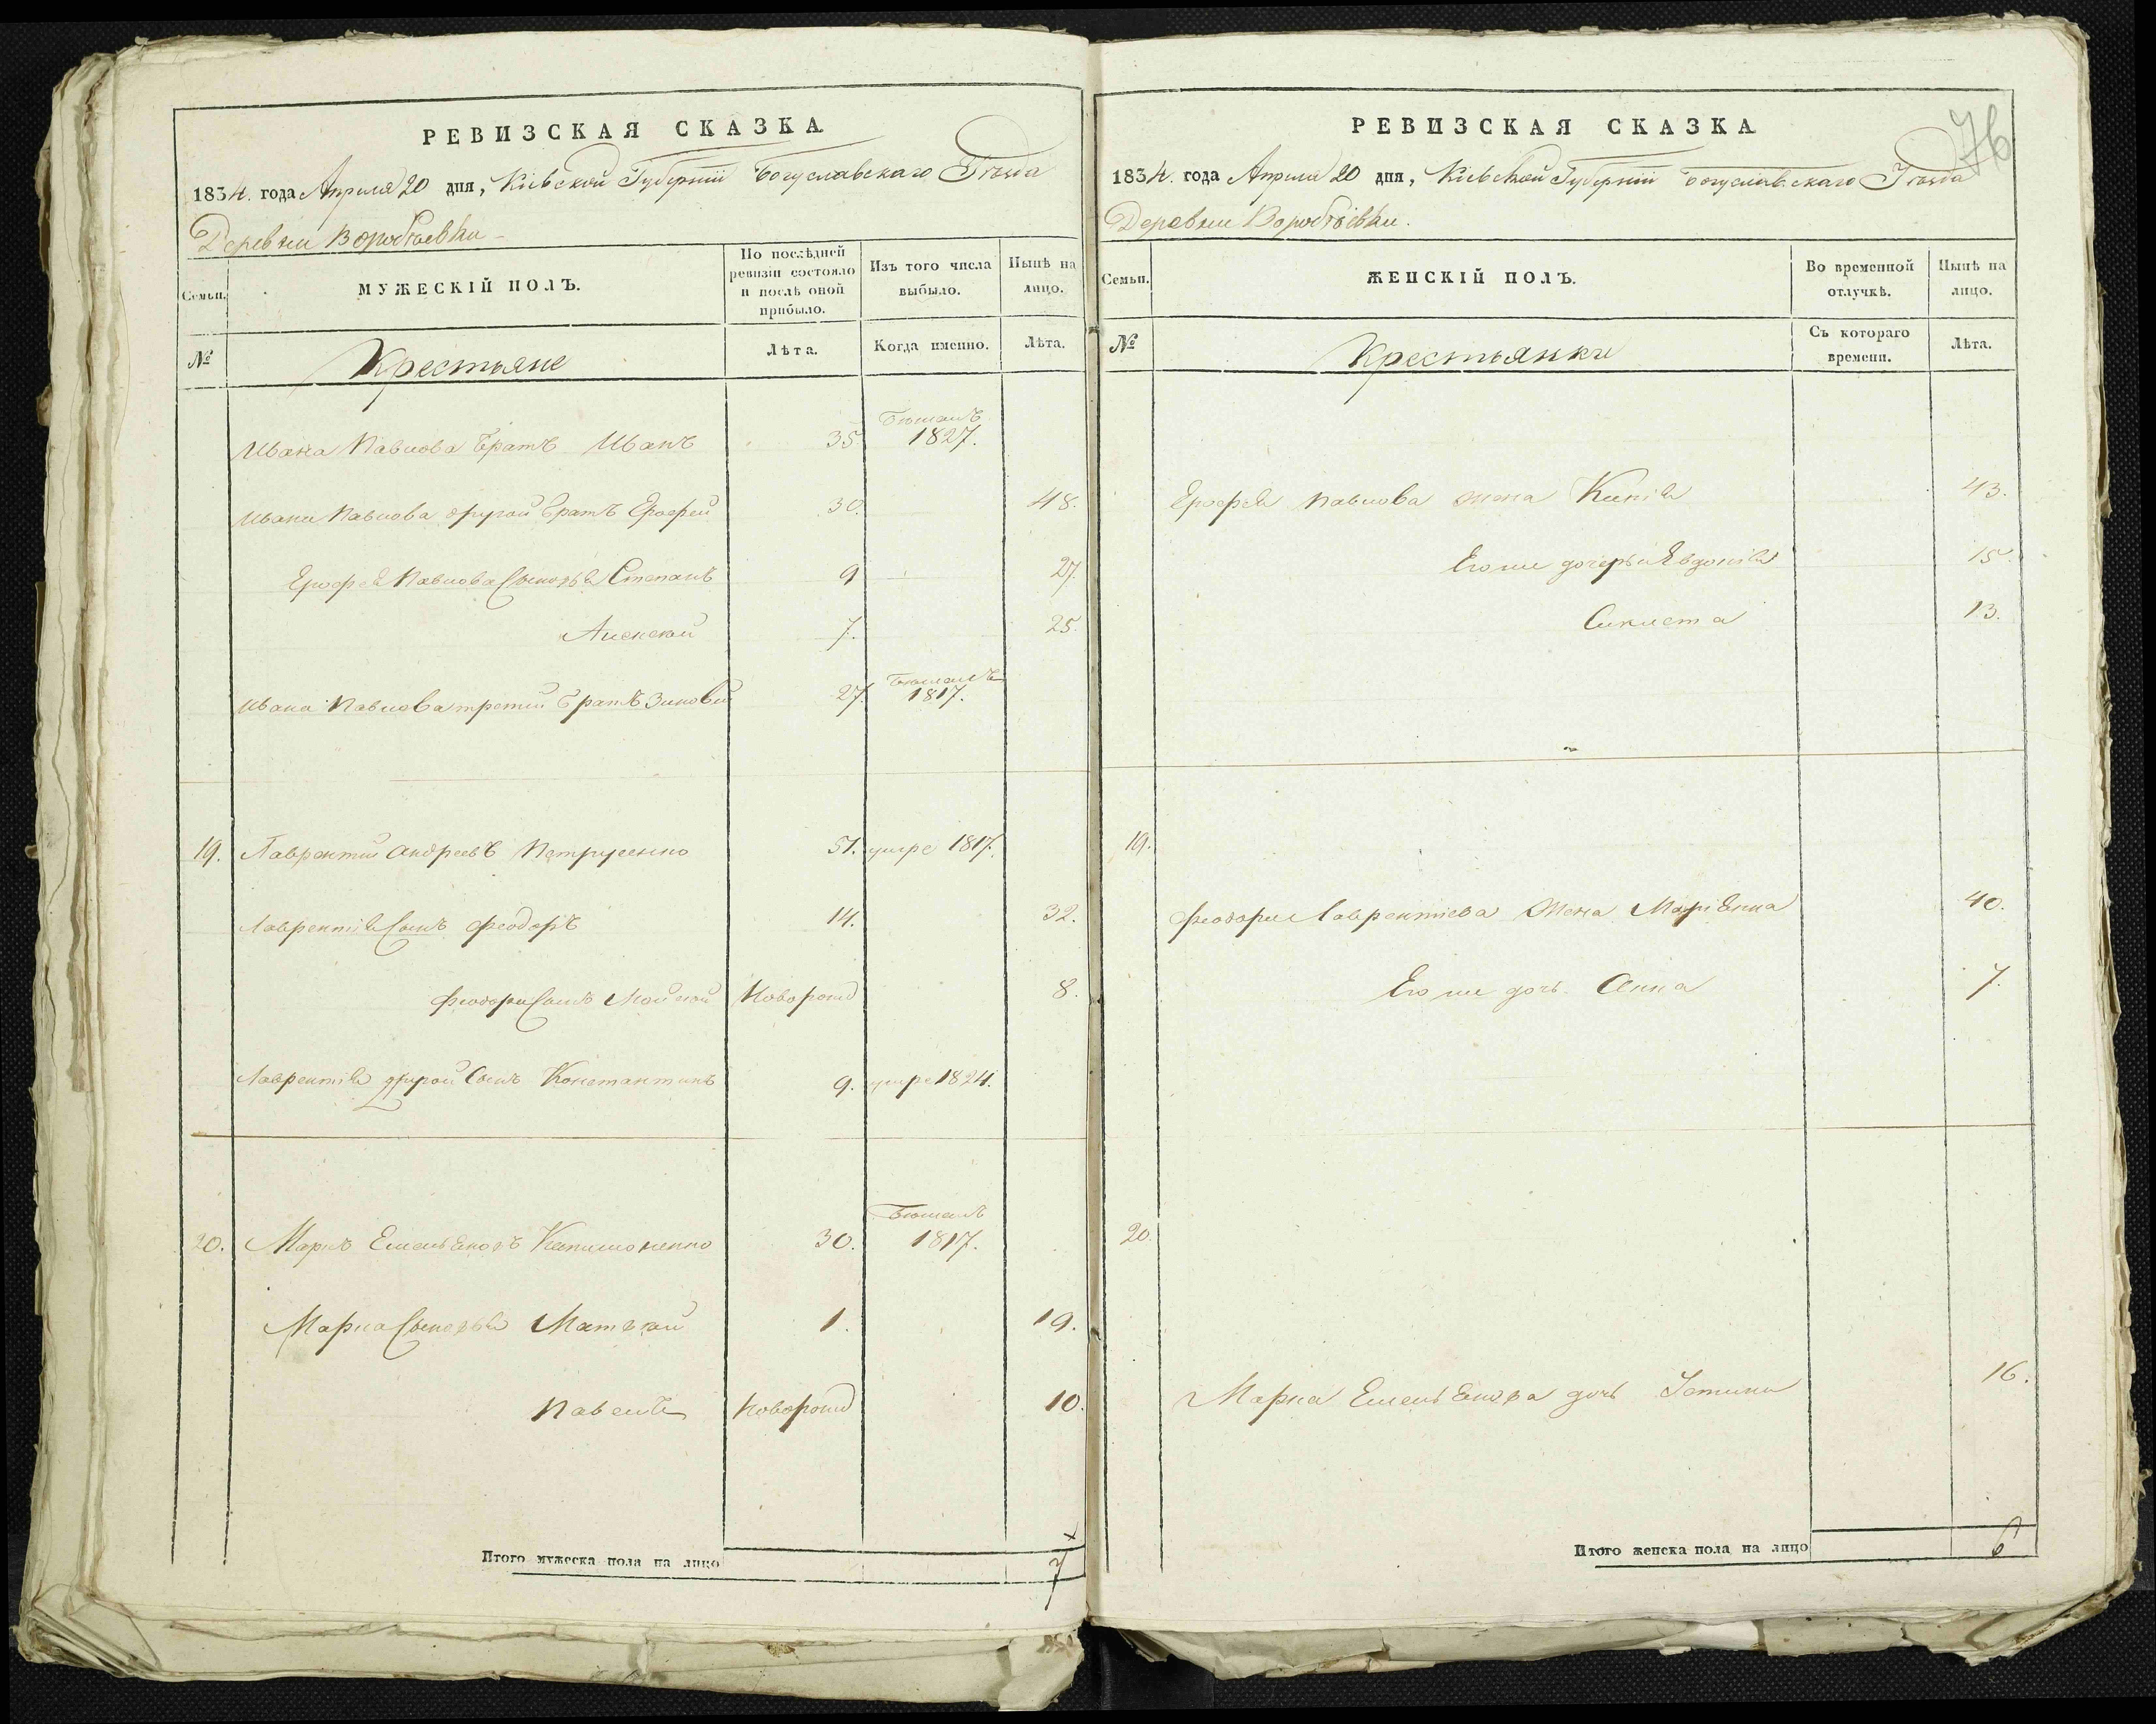 РЕВИЗСКАЯ СКАЗКА
1834. года Апреля 20 дня, Кіевской Губерніи Богуславскаго Уѣзда
Деревни Воробіевки
Семьи.
МУЖЕСКІЙ ПОЛЪ.
По послѣдней ревизіи состояло и послѣ оной прибыло.
Изъ того числа выбыло.
Нынѣ на лицо.
№
Крестьяне
Лѣта.
Когда именно.
Лѣта.
Ивана Павлова братъ Иванъ 35 бѣжалъ 1827.
Ивана Павлова другой братъ Ерофей 30. 48.
Ерофея Павлова Сыновья Степанъ 9 27.
Алексей 7. 25.
Ивана Павлова третий братъ Зиновий 27. бѣжалъ 1817.
19. Лаврентий Андреевъ Петрусенко 51. умре 1817.
Лаврентія Сынъ Феодоръ 14. 32.
Феодора Сынъ Мойсей Новорожд 8.
Лаврентія другой Сынъ Константинъ 9. умре 1824.
20. Марко Емельяновъ 30. бѣжалъ 1817.
Марка Сыновья Матвей 1. 19.
Павелъ Новорожд 10.
Итого мужеска пола на лицо 7
РЕВИЗСКАЯ СКАЗКА
76
1834. года Апреля 20 дня, Кіевской Губерніи Богуславскаго Уѣзда
Деревни Воробіевки.
Семьи.
ЖЕНСКІЙ ПОЛЪ.
Во временной отлучкѣ.
Нынѣ на лицо.
№
Крестьянки
Съ котораго времени.
Лѣта.
Ерофея Павлова жена Килія 43.
Его же дочери Евдокія 15.
13.
19.
Феодора Лаврентіева Жена Маріянна 40.
Его же дочь Анна 7.
20.
Марка Емельянова дочь 16.
Итого женска пола на лицо 6